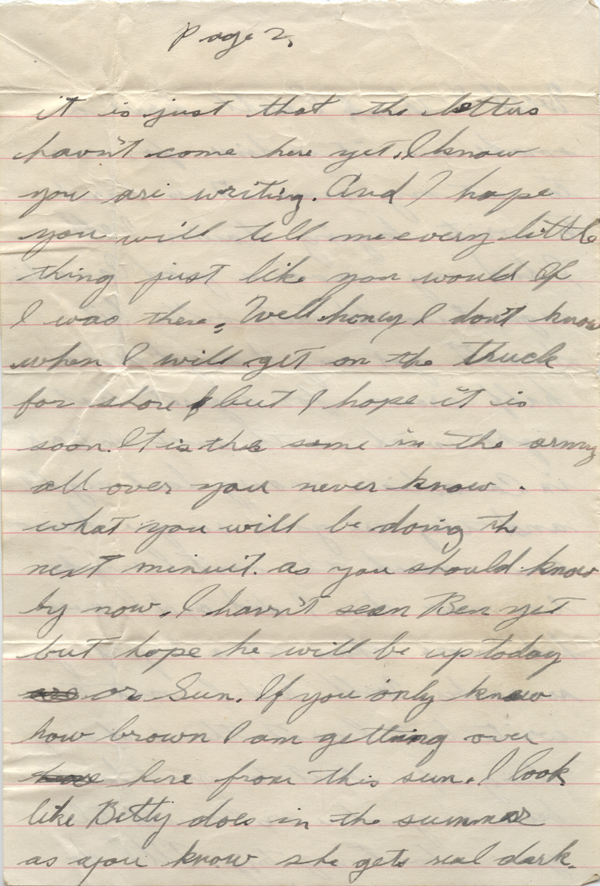 Page 2,
it is just that the letters
havn't come here yet. I know
you are writing. And I hope
you will tell me every little
thing just like you would if
I was there. Well honey I don't know
when I will get on the truck
for shou but I hope it is
soon. It is the same in the army
all over you never know.
what you will be doing th
next minuit. as you should know
by now. I havn't seen Ben yet
but hope he will be up today
or Sun. If you only knew
how brown I am getting over
here from this sun. I look
like Betty does in the summer
as you know she gets real dark.